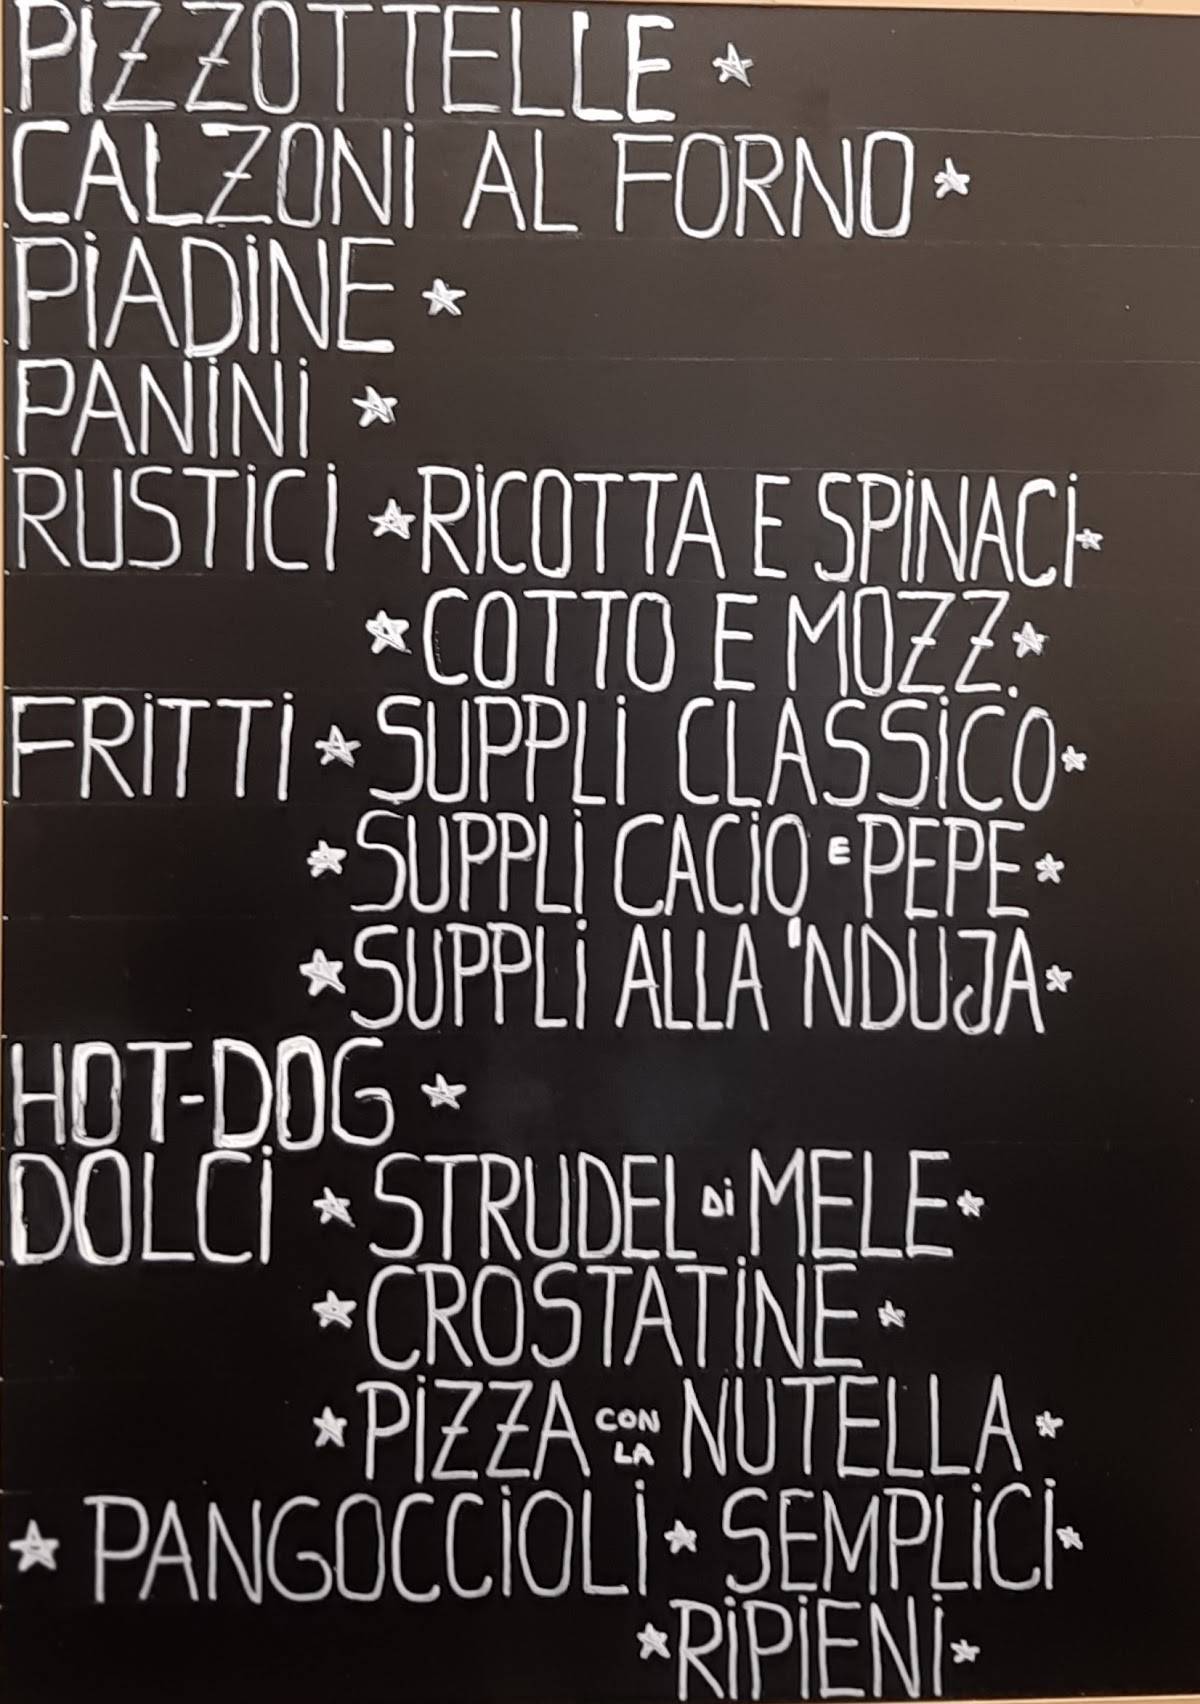 PIZZOTTELLE ★
CALZONI AL FORNO ★
PIADINE ★
PANINI ★
RUSTICI ★ RICOTTA E SPINACI ★
★ COTTO E MOZZ. ★
FRITTI ★ SUPPLI CLASSICO ★
★ SUPPLI CACIO E PEPE ★
★ SUPPLI ALLA 'NDUJA ★
HOT-DOG ★
DOLCI ★ STRUDEL DI MELE ★
★ CROSTATINE ★
★ PIZZA CON LA NUTELLA ★
★ PANGOCCIOLI ★ SEMPLICI ★
★ RIPIENI ★